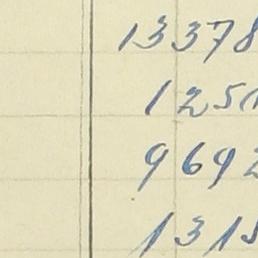 13378
125
9692
131